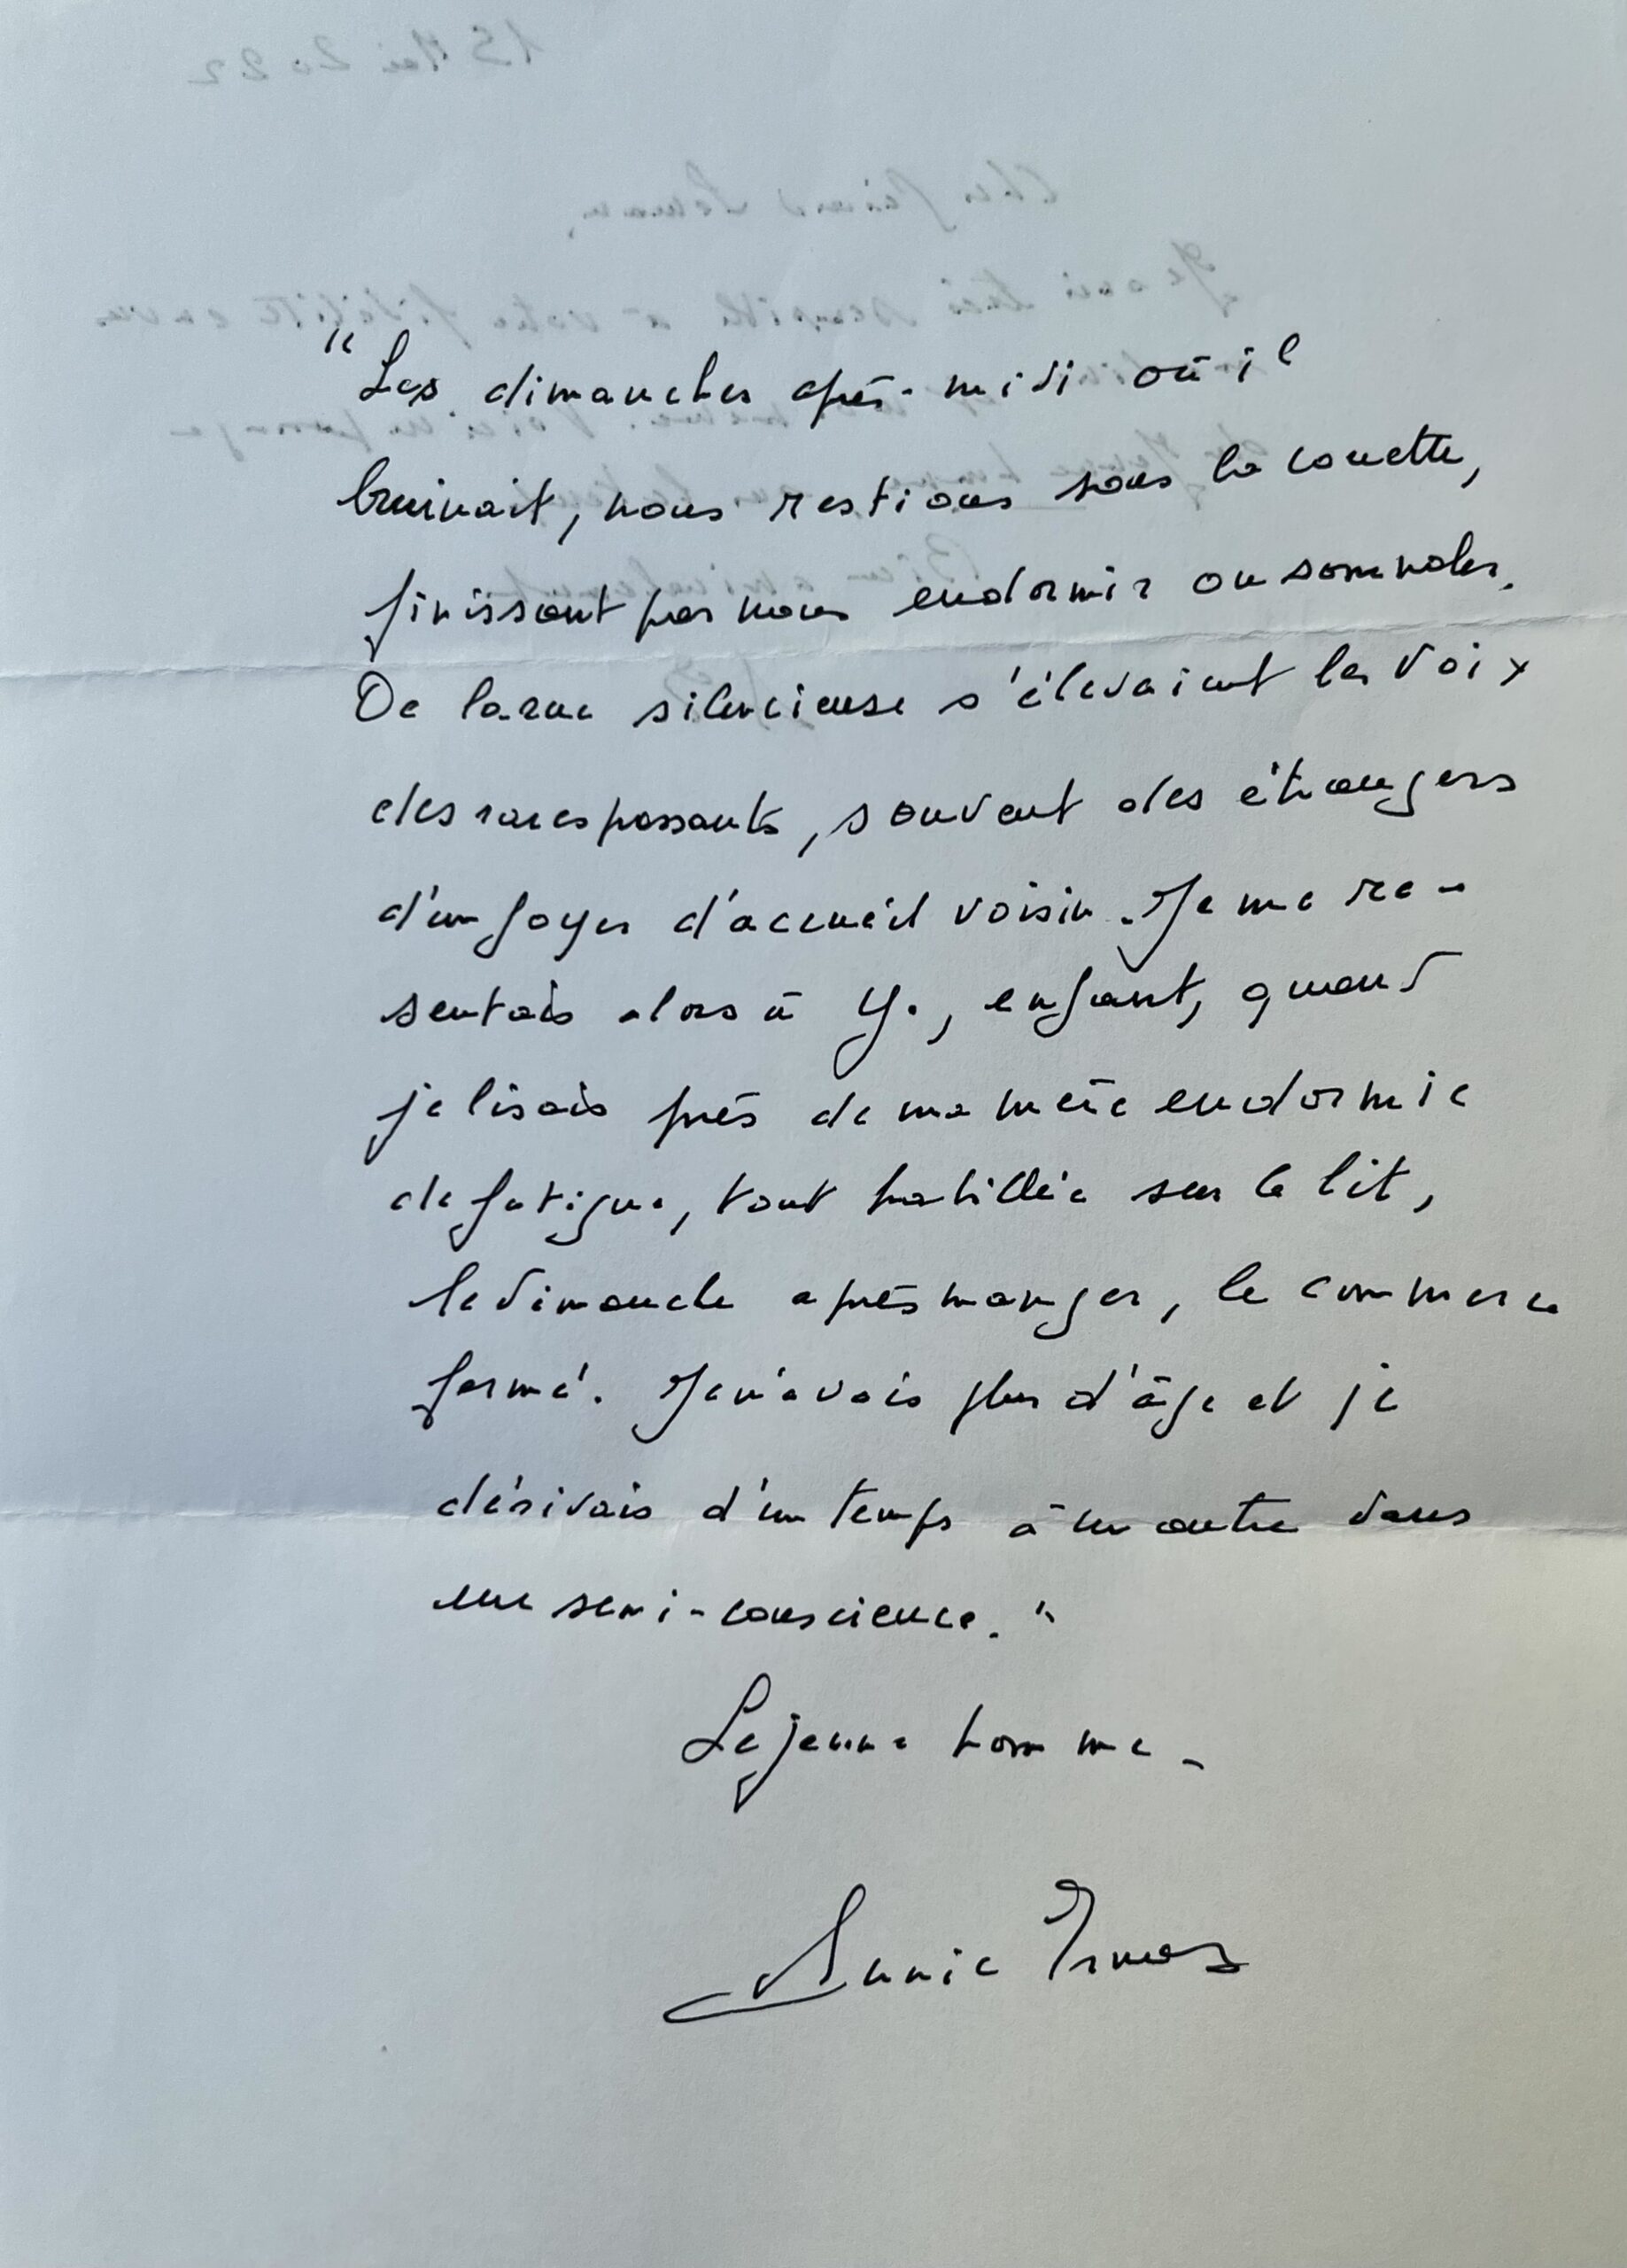 "Les dimanches après-midi où il
bruinait, nous restions sous la couette,
finissant par nous endormir ou somnoler.
De la rue silencieuse s'élevaient les voix
des rares passants, souvent des étrangers
d'un foyer d'accueil voisin. Je me re-
sentais alors à Y., enfant, quand
je lisais près de ma mère endormie
de fatigue, tout habillée sur le lit,
le dimanche après manger, le commerce
fermé. Je n'avais plus d'âge et je
dérivais d'un temps à un autre dans
une semi-conscience."
Le jeune homme.
Annie Ernaux
15 Mai 2022